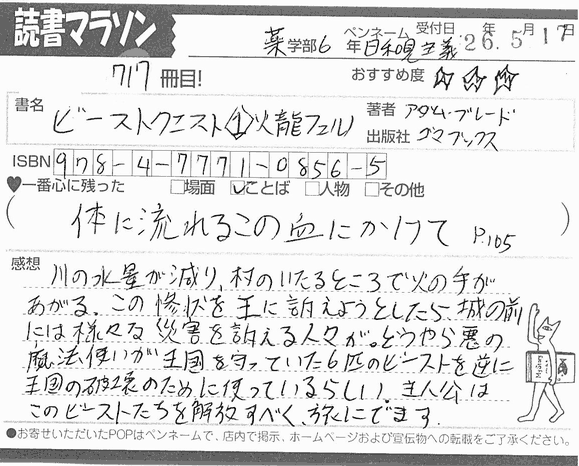 読書マラソン
薬学部6年 ペンネーム 日和見主義 受付日 26年5月17日
717冊目! おすすめ度 ☆☆☆
書名 ビーストクエスト①火龍フェルノ
著者 アダム・ブレード
出版社 ゴマブックス
ISBN 978-4-7771-0856-5
♥一番心に残った □場面 ☑ことば □人物 □その他
(体に流れるこの血にかけて P.105)
感想
川の水量が減り、村のいたるところで火の手が
あがる。この惨状を王に訴えようとしたら、城の前
には様々な災害を訴える人々が。どうやら悪の
魔法使いが王国を守っていた6匹のビーストを逆に
王国の破壊のために使っているらしい。主人公は
このビーストたちを解放すべく、旅にでます。
●お寄せいただいたPOPはペンネームで、店内で掲示、ホームページおよび宣伝物への転載をご了承ください。